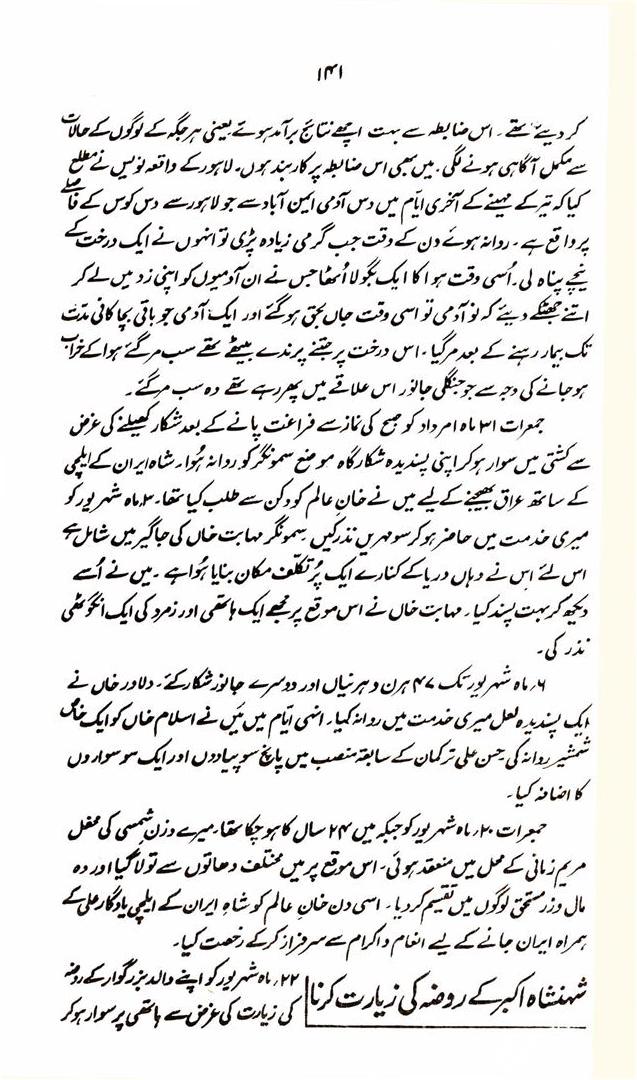 ۱۴۱
کر دیئے تھے۔ اس ضابطہ سے بہت اچھے نتائج برآمد ہوئے یعنی ہر جگہ کے لوگوں کے حالات
سے مکمل آگاہی ہونے لگی۔ میں بھی اس ضابطہ پر کاربند ہوں۔ لاہور کے واقعہ نویس نے مطلع
کیا کہ تیر کے مہینے کے آخری ایام میں دس آدمی امین آباد سے جو لاہور سے دس کوس کے فاصلے
پر واقع ہے۔ روانہ ہوئے دن کے وقت جب گرمی زیادہ پڑی تو انہوں نے ایک درخت کے
نیچے پناہ لی۔ اُسی وقت ہوا کا ایک بگولا اُٹھا جس نے ان آدمیوں کو اپنی زد میں لے کر
اتنے جھٹکے دیئے کہ نو آدمی تو اسی وقت جاں بحق ہو گئے اور ایک آدمی جو باقی بچا کافی مدّت
تک بیمار رہنے کے بعد مر گیا۔ اس درخت پر جتنے پرندے بیٹھے تھے سب مر گئے ہوا کے خراب
ہو جانے کی وجہ سے جو جنگلی جانور اس علاقے میں پھر رہے تھے وہ سب مر گئے۔
جمعرات ۳۱ ماہ امرداد کو صبح کی نماز سے فراغت پانے کے بعد شکار کھیلنے کی غرض
سے کشتی میں سوار ہو کر اپنی پسندیدہ شکارگاہ موضع سمونگر کو روانہ ہُوا۔ شاہ ایران کے ایلچی
کے ساتھ عراق بھیجنے کے لیے میں نے خانِ عالم کو دکن سے طلب کیا تھا۔ ۳، ماہ شہریور کو
میری خدمت میں حاضر ہو کر سو مہریں نذر کیں۔ سمونگر مہابت خاں کی جاگیر میں شامل ہے
اس لئے اس نے وہاں دریا کے کنارے ایک پُرتکلّف مکان بنایا ہُوا ہے۔ میں نے اُسے
دیکھ کر بہت پسند کیا۔ مہابت خاں نے اس موقع پر مجھے ایک ہاتھی اور زمرد کی ایک انگوٹھی
نذر کی۔
۶، ماہ شہریور تک ۴۷ ہرن و ہرنیاں اور دوسرے جانور شکار کئے۔ دلاور خاں نے
ایک پسندیدہ لعل میری خدمت میں روانہ کیا۔ انہی ایام میں مَیں نے اسلام خاں کو ایک خاص
شمشیر روانہ کی حسن علی ترکمان کے سابقہ منصب میں پانچ سو پیادوں اور ایک سو سواروں
کا اضافہ کیا۔
جمعرات ۲۰، ماہ شہریور کو جبکہ میں ۲۴ سال کا ہو چکا تھا، میرے وزن شمسی کی محفل
مریم زمانی کے محل میں منعقد ہوئی۔ اس موقع پر میں مختلف دھاتوں سے تولا گیا اور وہ
مال و زر مستحق لوگوں میں تقسیم کر دیا۔ اسی دن خانِ عالم کو شاہِ ایران کے ایلچی یادگار علی کے
ہمراہ ایران جانے کے لیے انعام و اکرام سے سرفراز کر کے رخصت کیا۔
شہنشاہ اکبر کے روضہ کی زیارت کرنا
۲۲، ماہ شہریور کو اپنے والد بزرگوار کے روضہ
کی زیارت کی غرض سے ہاتھی پر سوار ہو کر